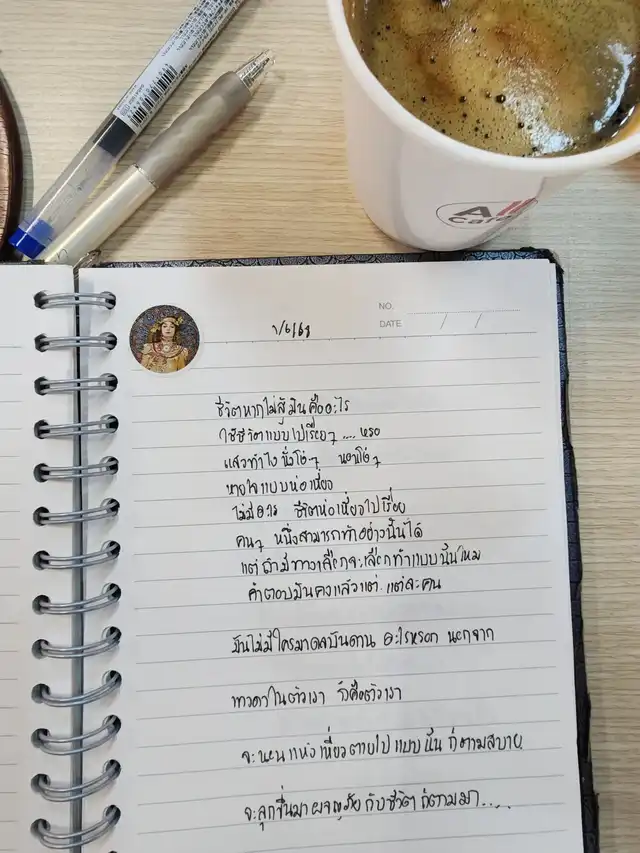 All
Café
NO.
DATE / /
1/6/63
ชีวิตหากไม่สู้มันคืออะไร
ใช้ชีวิตแบบไปเรื่อยๆ .... หรอ
แล้วทำไง นั่งโง่ๆ นอนโง่ๆ
หายใจแบบห่อเหี่ยว
ไม่มีอะไร ชีวิตห่อเหี่ยวไปเรื่อย
คนๆ หนึ่งสามารถทำอย่างนั้นได้
แต่ถ้ามีทางเลือกจะเลือกทำแบบนั้นไหม
คำตอบมันคงแล้วแต่ แต่ละคน
มันไม่มีใครมาดลบันดาน อะไรหรอก นอกจาก
เทวดาในตัวเรา ก็คือตัวเรา
จะนอนแห้งเหี่ยวตายไป แบบนั้น ก็ตามสบาย
จะลุกขึ้นมาผจญภัย กับชีวิต ก็ตามมา....